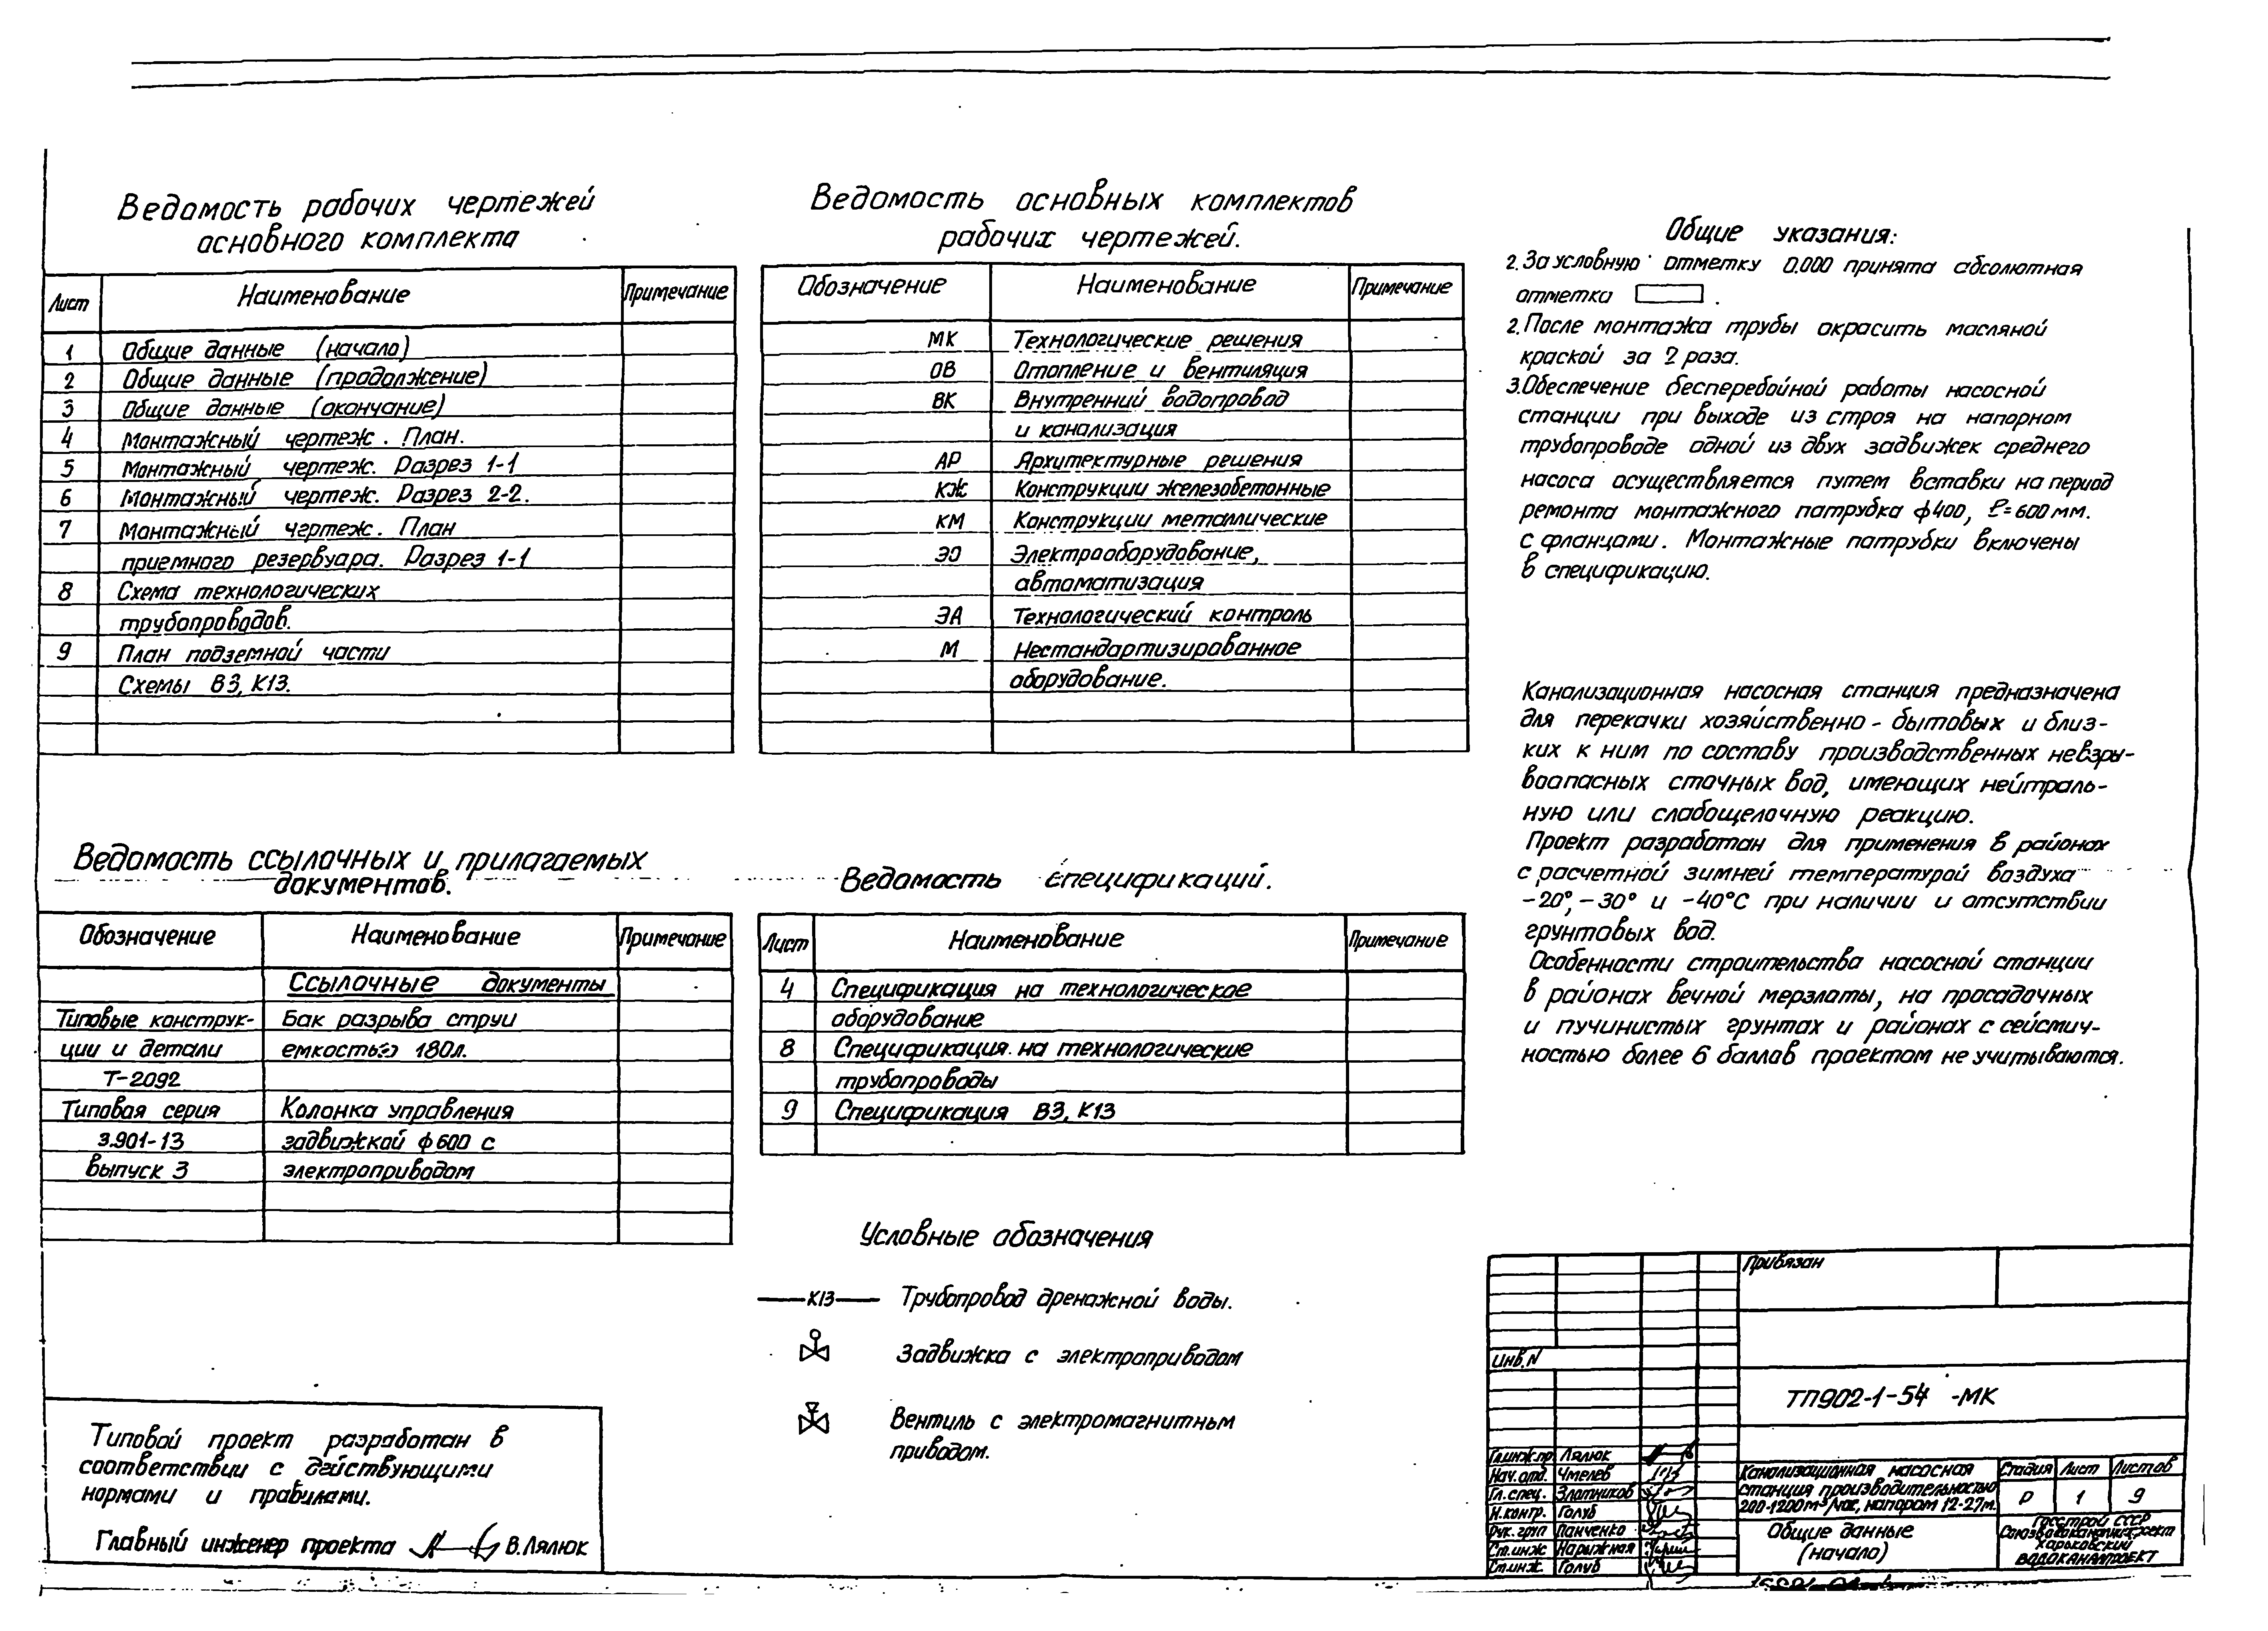 Ведомость рабочих чертежей
основного комплекта
Лист Наименование Примечание
1 Общие данные (начало)
2 Общие данные (продолжение)
3 Общие данные (окончание)
4 Монтажный чертеж. План.
5 Монтажный чертеж. Разрез 1-1
6 Монтажный чертеж. Разрез 2-2.
7 Монтажный чертеж. План
приемного резервуара. Разрез 1-1
8 Схема технологических
трубопроводов.
9 План подземной части
Схемы В3, К13.
Ведомость основных комплектов
рабочих чертежей.
Обозначение Наименование Примечание
МК Технологические решения
ОВ Отопление и вентиляция
ВК Внутренний водопровод
и канализация
АР Архитектурные решения
КЖ Конструкции железобетонные
КМ Конструкции металлические
ЭО Электрооборудование,
автоматизация
ЭА Технологический контроль
М Нестандартизированное
оборудование.
Общие указания:
2. За условную отметку 0.000 принята абсолютная
отметка .
2. После монтажа трубы окрасить масляной
краской за 2 раза.
3. Обеспечение бесперебойной работы насосной
станции при выходе из строя на напорном
трубопроводе одной из двух задвижек среднего
насоса осуществляется путем вставки на период
ремонта монтажного патрубка ф400, ℓ=600мм.
с фланцами. Монтажные патрубки включены
в спецификацию.
Канализационная насосная станция предназначена
для перекачки хозяйственно-бытовых и близ-
ких к ним по составу производственных невзры-
воопасных сточных вод, имеющих нейтраль-
ную или слабощелочную реакцию.
Проект разработан для применения в районах
с расчетной зимней температурой воздуха
-20°, -30° и -40°С при наличии и отсутствии
грунтовых вод.
Особенности строительства насосной станции
в районах вечной мерзлоты, на просадочных
и пучинистых грунтах и районах с сейсмич-
ностью более 6 баллов проектом не учитываются.
Ведомость ссылочных и прилагаемых
документов.
Обозначение Наименование Примечание
Ссылочные документы
Типовые конструк- Бак разрыва струи
ции и детали емкостью 180л.
Т-2092
Типовая серия Колонка управления
3.901-13 задвижкой ф600 с
выпуск 3 электроприводом
Ведомость спецификаций.
Лист Наименование Примечание
4 Спецификация на технологическое
оборудование
8 Спецификация на технологические
трубопроводы
9 Спецификация В3, К13
Условные обозначения
К13 Трубопровод дренажной воды.
Задвижка с электроприводом
Вентиль с электромагнитным
приводом.
Типовой проект разработан в
соответствии с действующими
нормами и правилами.
Главный инженер проекта В.Лялюк
Привязан
Инв.N
ТП902-1-54 -МК
Гл.инж.пр. Лялюк
Нач.отд. Чмелев
Гл.спец. Златников
Н.контр. Голуб
Рук.груп Панченко
Ст.инж Нарыжная
Ст.инж. Голуб
Канализационная насосная
станция производительностью
200-1200м³/час, напором 12-27м.
Стадия Лист Листов
Р 1 9
Общие данные
(начало)
Госстрой СССР
Союзводоканалпроект
Харьковский
ВОДОКАНАЛПРОЕКТ